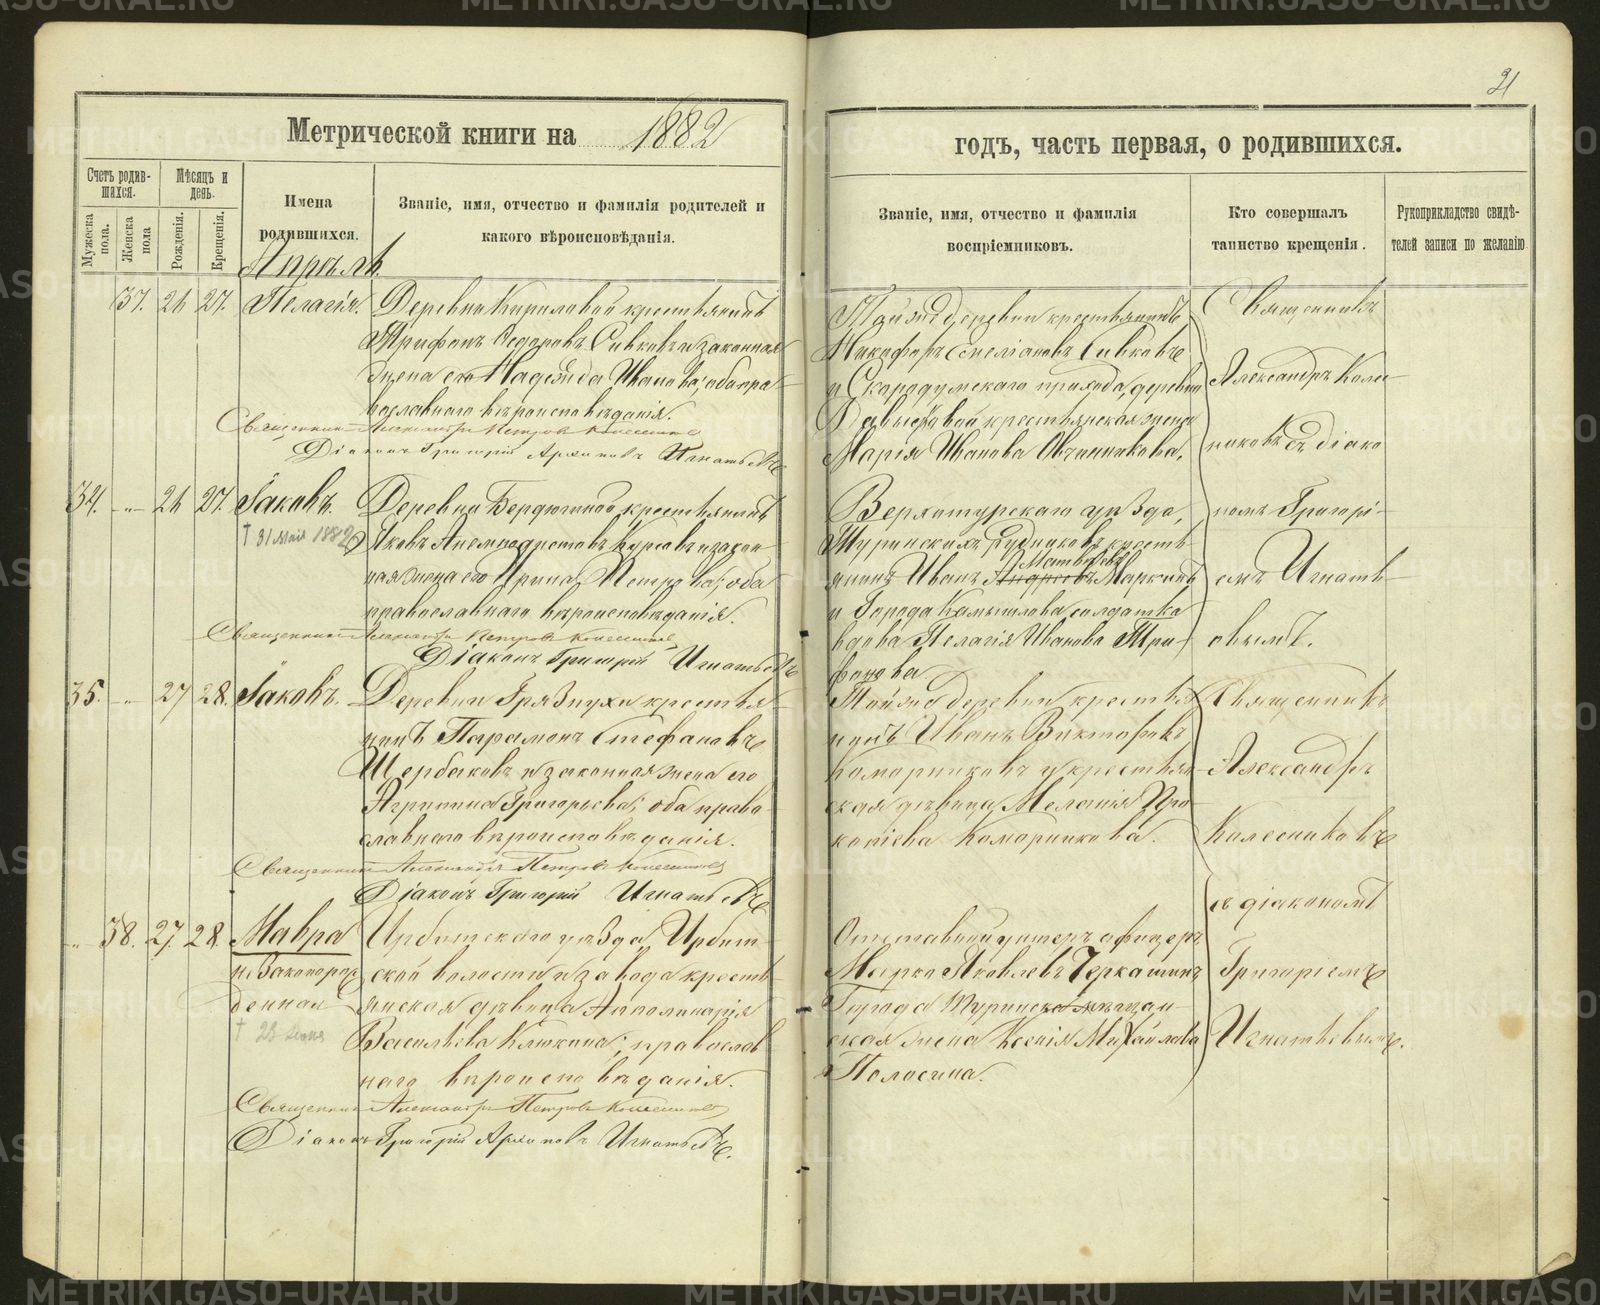 21
Метрической книги на 1882
годъ, часть первая, о родившихся.
Счетъ родив-
шихся.
Мѣсяцъ и
день.
Мужеска
пола.
Женска
пола
Рожденія.
Крещенія.
Имена
родившихся.
Званіе, имя, отчество и фамилія родителей и
какого вѣроисповѣданія.
Званіе, имя, отчество и фамилія
воспріемниковъ.
Кто совершалъ
таинство крещенія.
Рукоприкладство свидѣ-
телей записи по желанію
Апрѣль.
37. 26 27. Пелагія.
Деревни Кириловой крестьянинъ
Трифонъ Ѳедоровъ Сивковъ и законная
жена его Надежда Иванова; оба пра-
вославнаго вѣроисповѣданія.
Священникъ Александръ Петровъ Колесниковъ
Діаконъ Григорій Архиповъ Игнатьевъ
Той же деревни крестьянинъ
Никифоръ Емеліановъ Сивковъ
и Скородумскаго прихода, деревни
Давыдовой крестьянская жена
Марія Иванова Овчинникова.
Священникъ
Александръ Колес-
никовъ съ діако-
номъ Григорі-
емъ Игнать-
евымъ.
34. -„- 26 27. Іаковъ.
† 31 мая 1882
Деревни Бердюгиной крестьянинъ
Яковъ
и закон-
ная жена его Ирина Петрова; оба
православнаго вѣроисповѣданія.
Священникъ Александръ Петровъ Колесниковъ
Діаконъ Григорій Игнатьевъ
Верхотурскаго уѣзда,
Туринскихъ рудниковъ кресть-
Матвѣевъ
янинъ Иванъ Андреевъ Маркинъ
и Города Камышлова солдатка
вдова Пелагія Иванова Три-
фонова
35. -„- 27 28. Іаковъ.
Деревни Грязнухи крестья-
нинъ Парамонъ Стефановъ
Щербаковъ и законная жена его
Агрипина Григорьева; оба право-
славнаго вѣроисповѣданія.
Священникъ Александръ Петровъ Колесниковъ
Діаконъ Григорій Игнатьевъ
Той же деревни крестья-
нинъ Иванъ Викторовъ
Комарниковъ и крестьян-
ская дѣвица Меланія Про-
копіева Комарникова.
Священникъ
Александръ
Колесниковъ
съ діакономъ
Григоріемъ
Игнатьевымъ.
-„- 38. 27. 28. Мавра
незаконорож-
денная
† 23 іюня
Ирбитскаго уѣзда, Ирбит-
ской волости и завода кресть-
янская дѣвица Апполинарія
Васильева Клюкина; православ-
наго вѣроисповѣданія.
Священникъ Александръ Петровъ Колесниковъ
Діаконъ Григорій Архиповъ Игнатьевъ.
Отставной унтеръ офицеръ
Марко Яковлевъ Черкашинъ
Города Туринска мѣщан-
ская жена Ксенія Михайлова
Полосина.
METRIKI.GASO-URAL.RU